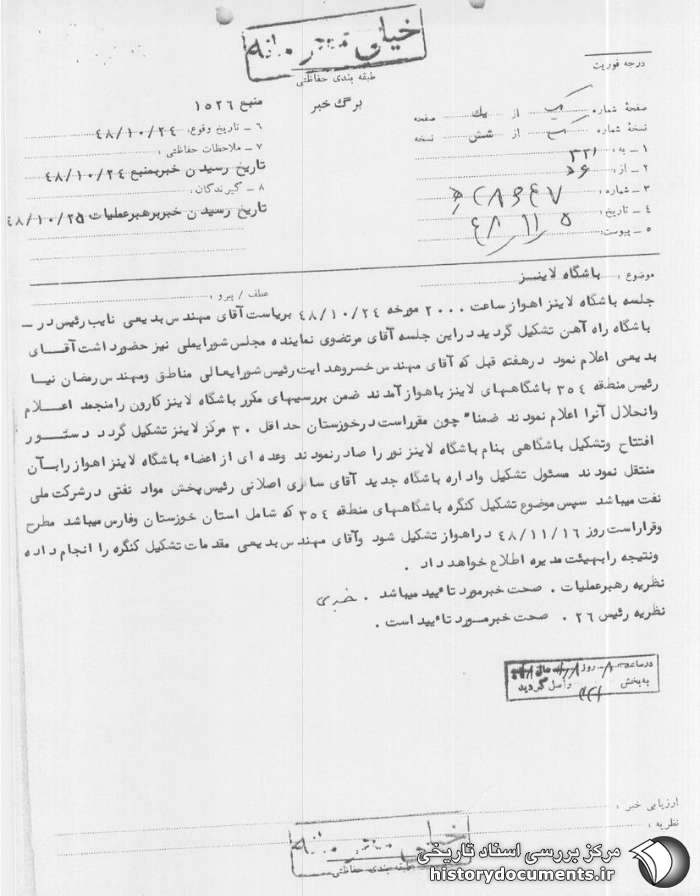 خیلی محرمانه
طبقه بندی حفاظتی
درجه فوریت
برگ خبر
صفحهٔ شماره یک از یک صفحه
نسخهٔ شماره از شش نسخه
۱ – به: ۳۳۱
۲ – از: ۵۶
۳ – شماره:
۴ – تاریخ: ۴۸/۱۱/۵
۵ – پیوست:
منبع ۱۵۲۶
۶ – تاریخ وقوع: ۴۸/۱۰/۲۴
۷ – ملاحظات حفاظتی:
تاریخ رسیدن خبربمنبع ۴۸/۱۰/۲۴
۸ – گیرندگان:
تاریخ رسیدن خبربرهبرعملیات ۴۸/۱۰/۲۵
موضوع: باشگاه لاینز
عطف / پیرو:
جلسه باشگاه لاینز اهواز ساعت ۲۰۰۰ مورخه ۴۸/۱۰/۲۴ بریاست آقای مهندس بدیعی نایب رئیس در –
باشگاه راه آهن تشکیل گردید دراین جلسه آقای مرتضوی نماینده مجلس شورایملی نیز حضورداشت آقای
بدیعی اعلام نمود درهفته قبل که آقای مهندس خسروهدایت رئیس شورایعالی مناطق ومهندس رمضان نیا
رئیس منطقه ۳۵۴ باشگاههای لاینز باهوازآمدند ضمن بررسیهای مکرر باشگاه لاینز کارون رامنجمد اعلام
وانحلال آنرا اعلام نمودند ضمناً چون مقرراست درخوزستان حداقل ۳۰ مرکز لاینز تشکیل گردد دستور
افتتاح وتشکیل باشگاهی بنام باشگاه لاینز نور را صادرنمودند وعده ای از اعضاء باشگاه لاینز اهواز رابآن
منتقل نمودند مسئول تشکیل واداره باشگاه جدید آقای سالاری اصلانی رئیس پخش مواد نفتی درشرکت ملی
نفت میباشد سپس موضوع تشکیل کنگره باشگاههای منطقه ۳۵۴ که شامل استان خوزستان وفارس میباشد مطرح
وقراراست روز ۴۸/۱۱/۱۶ دراهواز تشکیل شود وآقای مهندس بدیعی مقدمات تشکیل کنگره را انجام داده
ونتیجه رابهیئت مدیره اطلاع خواهد داد .
نظریه رهبرعملیات . صحت خبرمورد تائید میباشد . خبری
نظریه رئیس ۲۶ . صحت خبرمورد تائید است .
در ساعت روز
به بخش ۳۳۱ واصل گردید
ارزیابی خبر:
نظریه:
خیلی محرمانه
طبقه بندی حفاظتی
مرکز بررسی اسناد تاریخی
historydocuments.ir